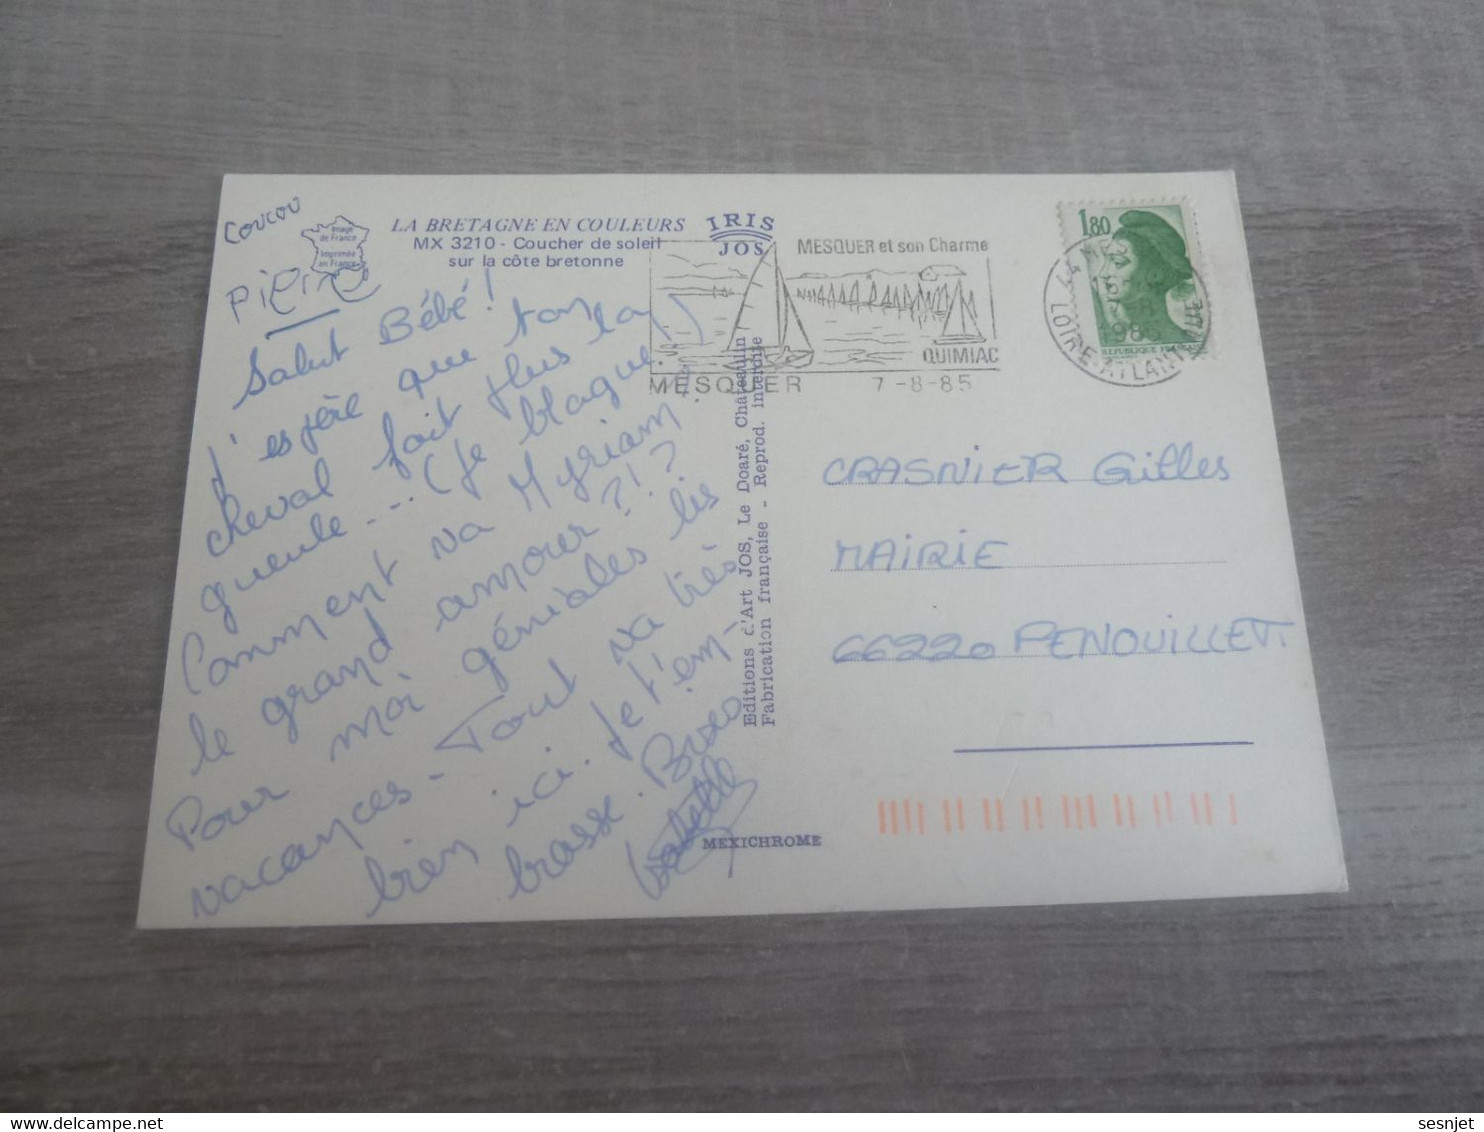 coucou
Pierre
Image
de France
Imprimée
en France
LA BRETAGNE EN COULEURS
MX 3210 - Coucher de soleil
sur la côte bretonne
IRIS
JOS
Salut Bébé!
J'espère que ton
cheval fait plus la
gueule... (Je blague)
Comment va Myriam
le grand amour?!?
Pour moi géniales les
vacances - Tout va très
bien ici. Je t'em-
brasse.
MESQUER et son Charme
QUIMIAC
MESQUER 7-8-85
1,80
LOIRE-ATLANTIQUE
Editions d'Art JOS, Le Doaré, Châteaulin
Fabrication française - Reprod. interdite
CRASNIER Gilles
MAIRIE
66220 PENOUILLET.
MEXICHROME
sesnjet